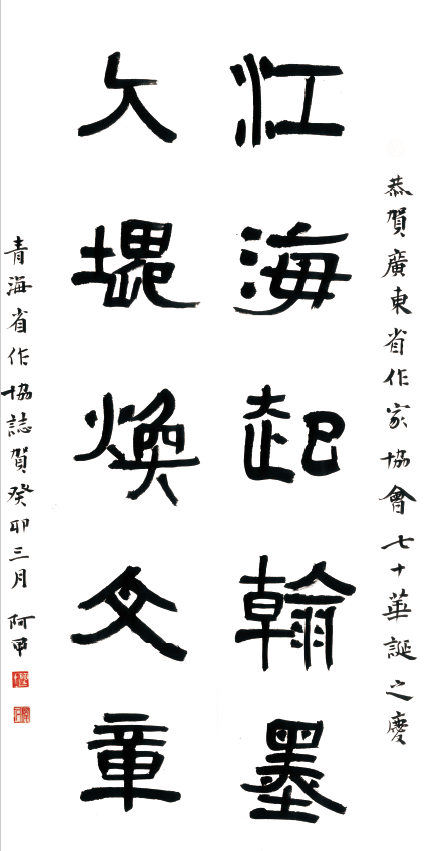 恭賀廣東省作家協會七十華誕之慶
江海起翰墨
人煥文章
青海省作協誌賀癸卯三月 阿甲